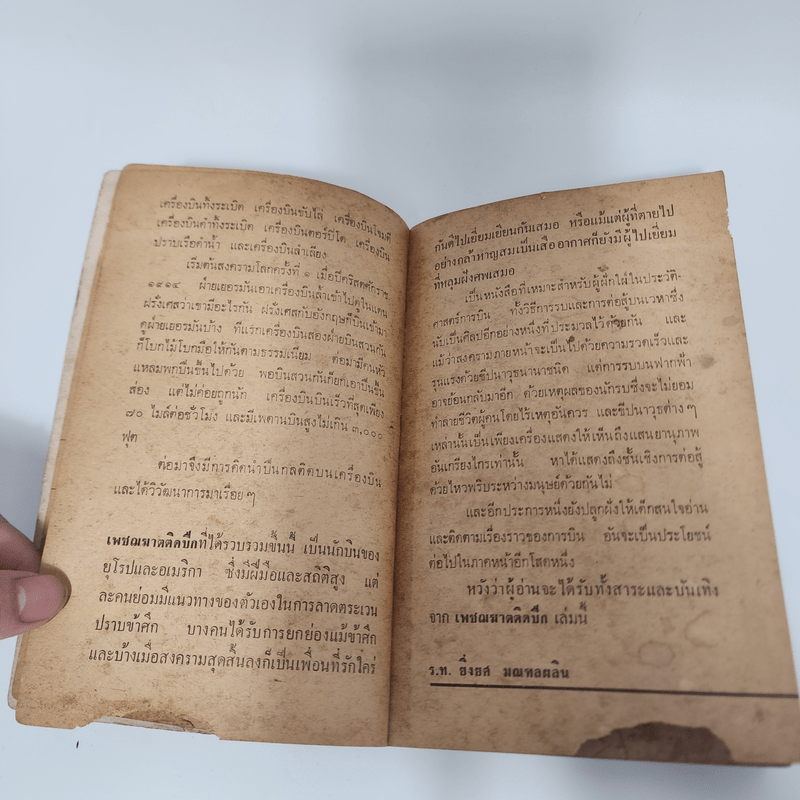 เครื่องบินทิ้งระเบิด เครื่องบินขับไล่ เครื่องบินโจมตี
เครื่องบินดำทิ้งระเบิด เครื่องบินตอร์ปิโด เครื่องบิน
ปราบเรือดำน้ำ และเครื่องบินลำเลียง
เริ่มต้นสงครามโลกครั้งที่ ๑ เมื่อปีคริสตศักราช
๑๙๑๔ ฝ่ายเยอรมันเอาเครื่องบินล้ำเข้าไปดูในแดน
ฝรั่งเศสว่าเขามีอะไรกัน ฝรั่งเศสกับอังกฤษก็บินเข้ามา
ดูฝ่ายเยอรมันบ้าง ที่แรกเครื่องบินสองฝ่ายบินสวนกัน
ก็โบกไม้โบกมือให้กันตามธรรมเนียม ต่อมามีคนหัว
แหลมพกปืนขึ้นไปด้วย พอบินสวนกันก็ยกเอาปืนขึ้น
ส่อง แต่ไม่ค่อยถูกนัก เครื่องบินบินเร็วที่สุดเพียง
๗๐ ไมล์ต่อชั่วโมง และมีเพดานบินสูงไม่เกิน ๓,๐๐๐
ฟุต
ต่อมาจึงมีการคิดนำปืนกลติดบนเครื่องบิน
และได้วิวัฒนาการมาเรื่อย ๆ
เพชฌฆาตติดปีกที่ได้รวบรวมขึ้นนี้ เป็นนักบินของ
ยุโรปและอเมริกา ซึ่งมีฝีมือและสถิติสูง แต่
ละคนย่อมมีแนวทางของตัวเองในการลาดตระเวน
ปราบข้าศึก บางคนได้รับการยกย่องแม้ข้าศึก
และบ้างเมื่อสงครามสุดสิ้นลงก็เป็นเพื่อนที่รักใคร่
กันดีไปเยี่ยมเยียนกันเสมอ หรือแม้แต่ผู้ที่ตายไป
อย่างกล้าหาญสมเป็นเสืออากาศก็ยังมีผู้ไปเยี่ยม
ที่หลุมฝังศพเสมอ
เป็นหนังสือที่เหมาะสำหรับผู้ฝักใฝ่ในประวัติ-
ศาสตร์การบิน ทั้งวิธีการรบและการต่อสู้บนเวหาซึ่ง
นับเป็นศิลปอีกอย่างหนึ่งที่ประมวลไว้ด้วยกัน และ
แม้ว่าสงครามภายหน้าจะเป็นไปด้วยความรวดเร็วและ
รุนแรงด้วยขีปนาวุธนานาชนิด แต่การรบบนฟากฟ้า
อาจย้อนกลับมาอีก ด้วยเหตุผลของนักรบซึ่งจะไม่ยอม
ทำลายชีวิตผู้คนโดยไร้เหตุอันควร และขีปนาวุธต่าง ๆ
เหล่านั้นเป็นเพียงเครื่องแสดงให้เห็นถึงแสนยานุภาพ
อันเกรียงไกรเท่านั้น หาได้แสดงถึงชั้นเชิงการต่อสู้
ด้วยไหวพริบระหว่างมนุษย์ด้วยกันไม่
และอีกประการหนึ่งยังปลูกฝั่งให้เด็กสนใจอ่าน
และติดตามเรื่องราวของการบิน อันจะเป็นประโยชน์
ต่อไปในภาคหน้าอีกโสดหนึ่ง
หวังว่าผู้อ่านจะได้รับทั้งสาระและบันเทิง
จาก เพชฌฆาตติดปีก เล่มนี้
ร.ท. ยิ่งยศ มณฑลผลิน